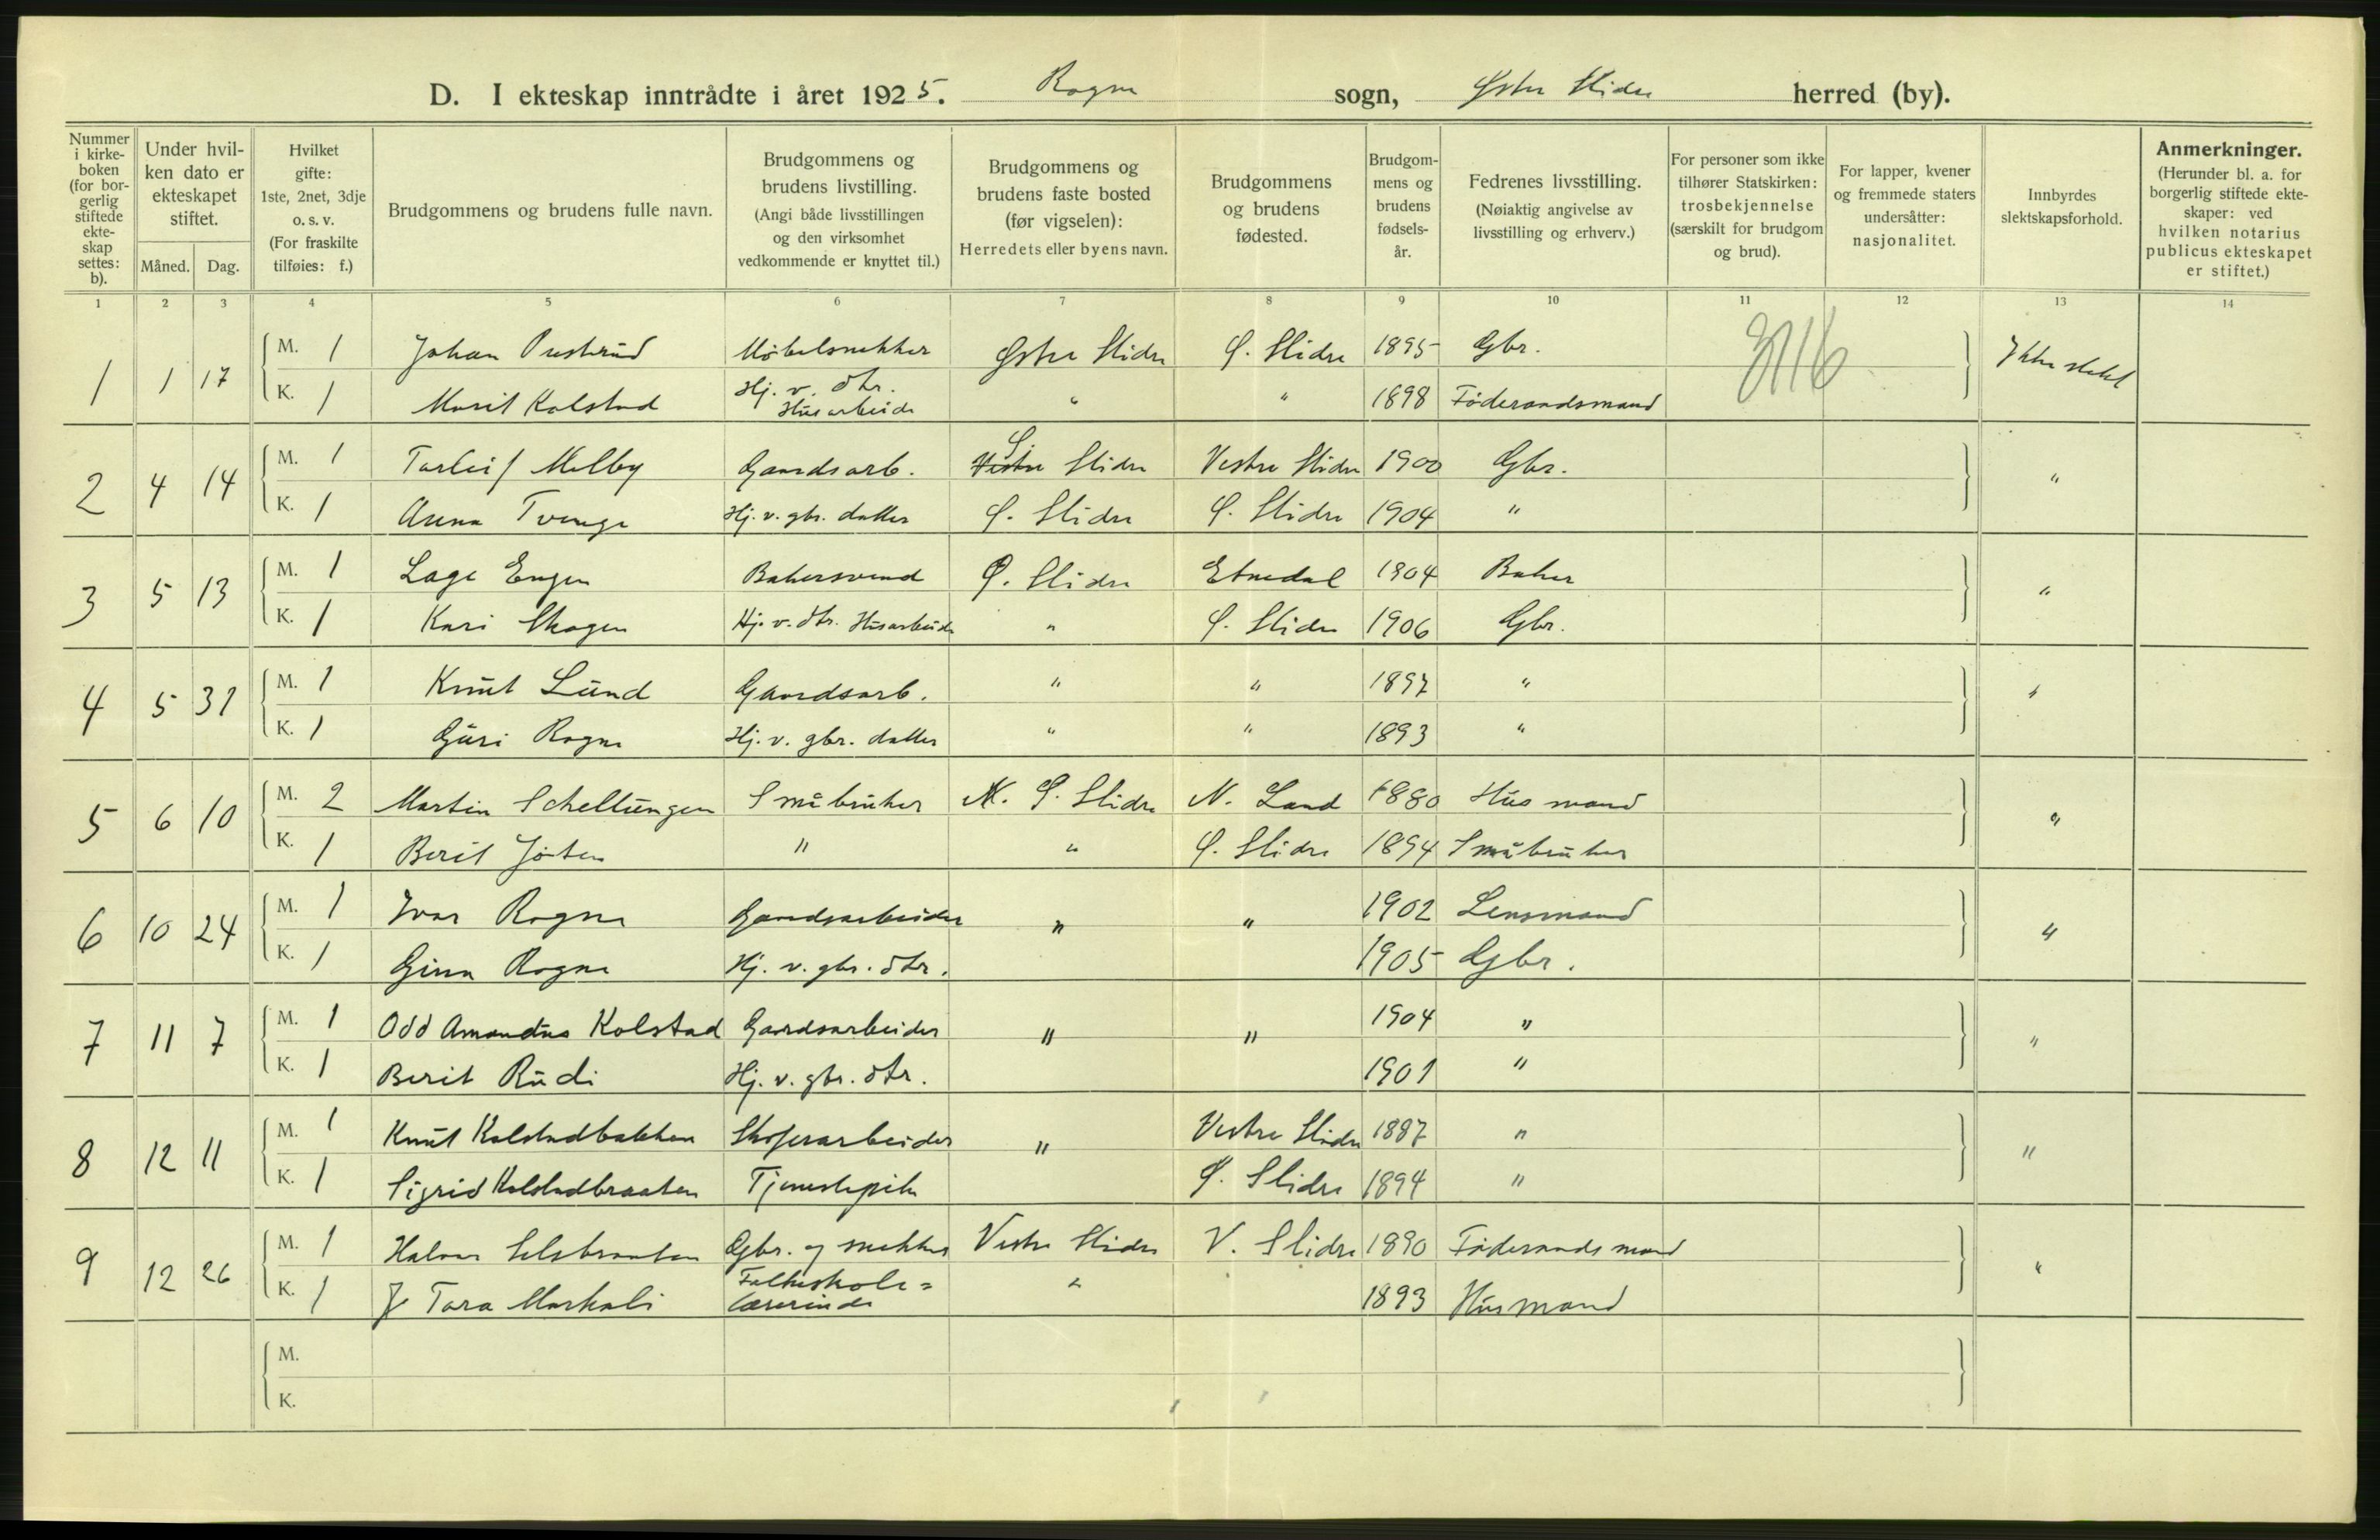 D. I ekteskap inntrådte i året 1925. Rogne sogn, Østre Slidre herred (by).
Nummer i kirkeboken (for borgerlig stiftede ekteskap settes: b).
Under hvilken dato er ekteskapet stiftet.
Måned. Dag.
Hvilket gifte: 1ste, 2net, 3dje o. s. v. (For fraskilte tilføies: f.)
Brudgommens og brudens fulle navn.
Brudgommens og brudens livstilling. (Angi både livsstillingen og den virksomhet vedkommende er knyttet til.)
Brudgommens og brudens faste bosted (før vigselen): Herredets eller byens navn.
Brudgommens og brudens fødested.
Brudgommens og brudens fødselsår.
Fedrenes livsstilling. (Nøiaktig angivelse av livsstilling og erhverv.)
For personer som ikke tilhører Statskirken: trosbekjennelse (særskilt for brudgom og brud).
For lapper, kvener og fremmede staters undersåtter: nasjonalitet.
Innbyrdes slektskapsforhold.
Anmerkninger. (Herunder bl. a. for borgerlig stiftede ekteskaper: ved hvilken notarius publicus ekteskapet er stiftet.)
1 2 3 4 5 6 7 8 9 10 11 12 13 14
1 1 17 M. 1 Johan Prestrud Møbelsnekker Østre Slidre Ø. Slidre 1895 Gbr. Ikke slekt
K. 1 Marit Kolstad Hj. v. dtr. Husarbeide " " 1898 Føderaadsmand
2 4 14 M. 1 Torleif Melby Gaardsarb. Vestre Slidre Vestre Slidre 1900 Gbr. "
K. 1 Anna Tvenge Hj. v. gbr. datter Ø. Slidre Ø. Slidre 1904 "
3 5 13 M. 1 Lage Engen Bakersvend Ø. Slidre Etnedal 1904 Baker "
K. 1 Kari Skogen Hj. v. dtr. Husarbeide " Ø. Slidre 1906 Gbr.
4 5 31 M. 1 Knut Lund Gaardsarb. " " 1897 " "
K. 1 Guri Rogne Hj. v. gbr. datter " " 1893 "
5 6 10 M. 2 Martin Schellungen Småbruker Ø. Slidre N. Land 1880 Husmand "
K. 1 Berit Joten " " Ø. Slidre 1894 Småbruker
6 10 24 M. 1 Ivar Rogne Gaardsarbeider " " 1902 Lensmand "
K. 1 Ginn Rogne Hj. v. gbr. dtr. 1905 Gbr.
7 11 7 M. 1 Odd Amandus Kolstad Gaardsarbeider " " 1904 " "
K. 1 Berit Rudi Hj. v. gbr. dtr. 1901 "
8 12 11 M. 1 Knut Kolstadbakken Skoferarbeider " Vestre Slidre 1887 " "
K. 1 Sigrid Kolstadbraaten Tjenestepike Ø. Slidre 1894 "
9 12 26 M. 1 Halvor Selsbraaten Gbr. og snekker Vestre Slidre V. Slidre 1890 Føderaadsmand "
K. 1 Tora Markali Folkeskole= lærerinde " 1893 Husmand
M.
K.